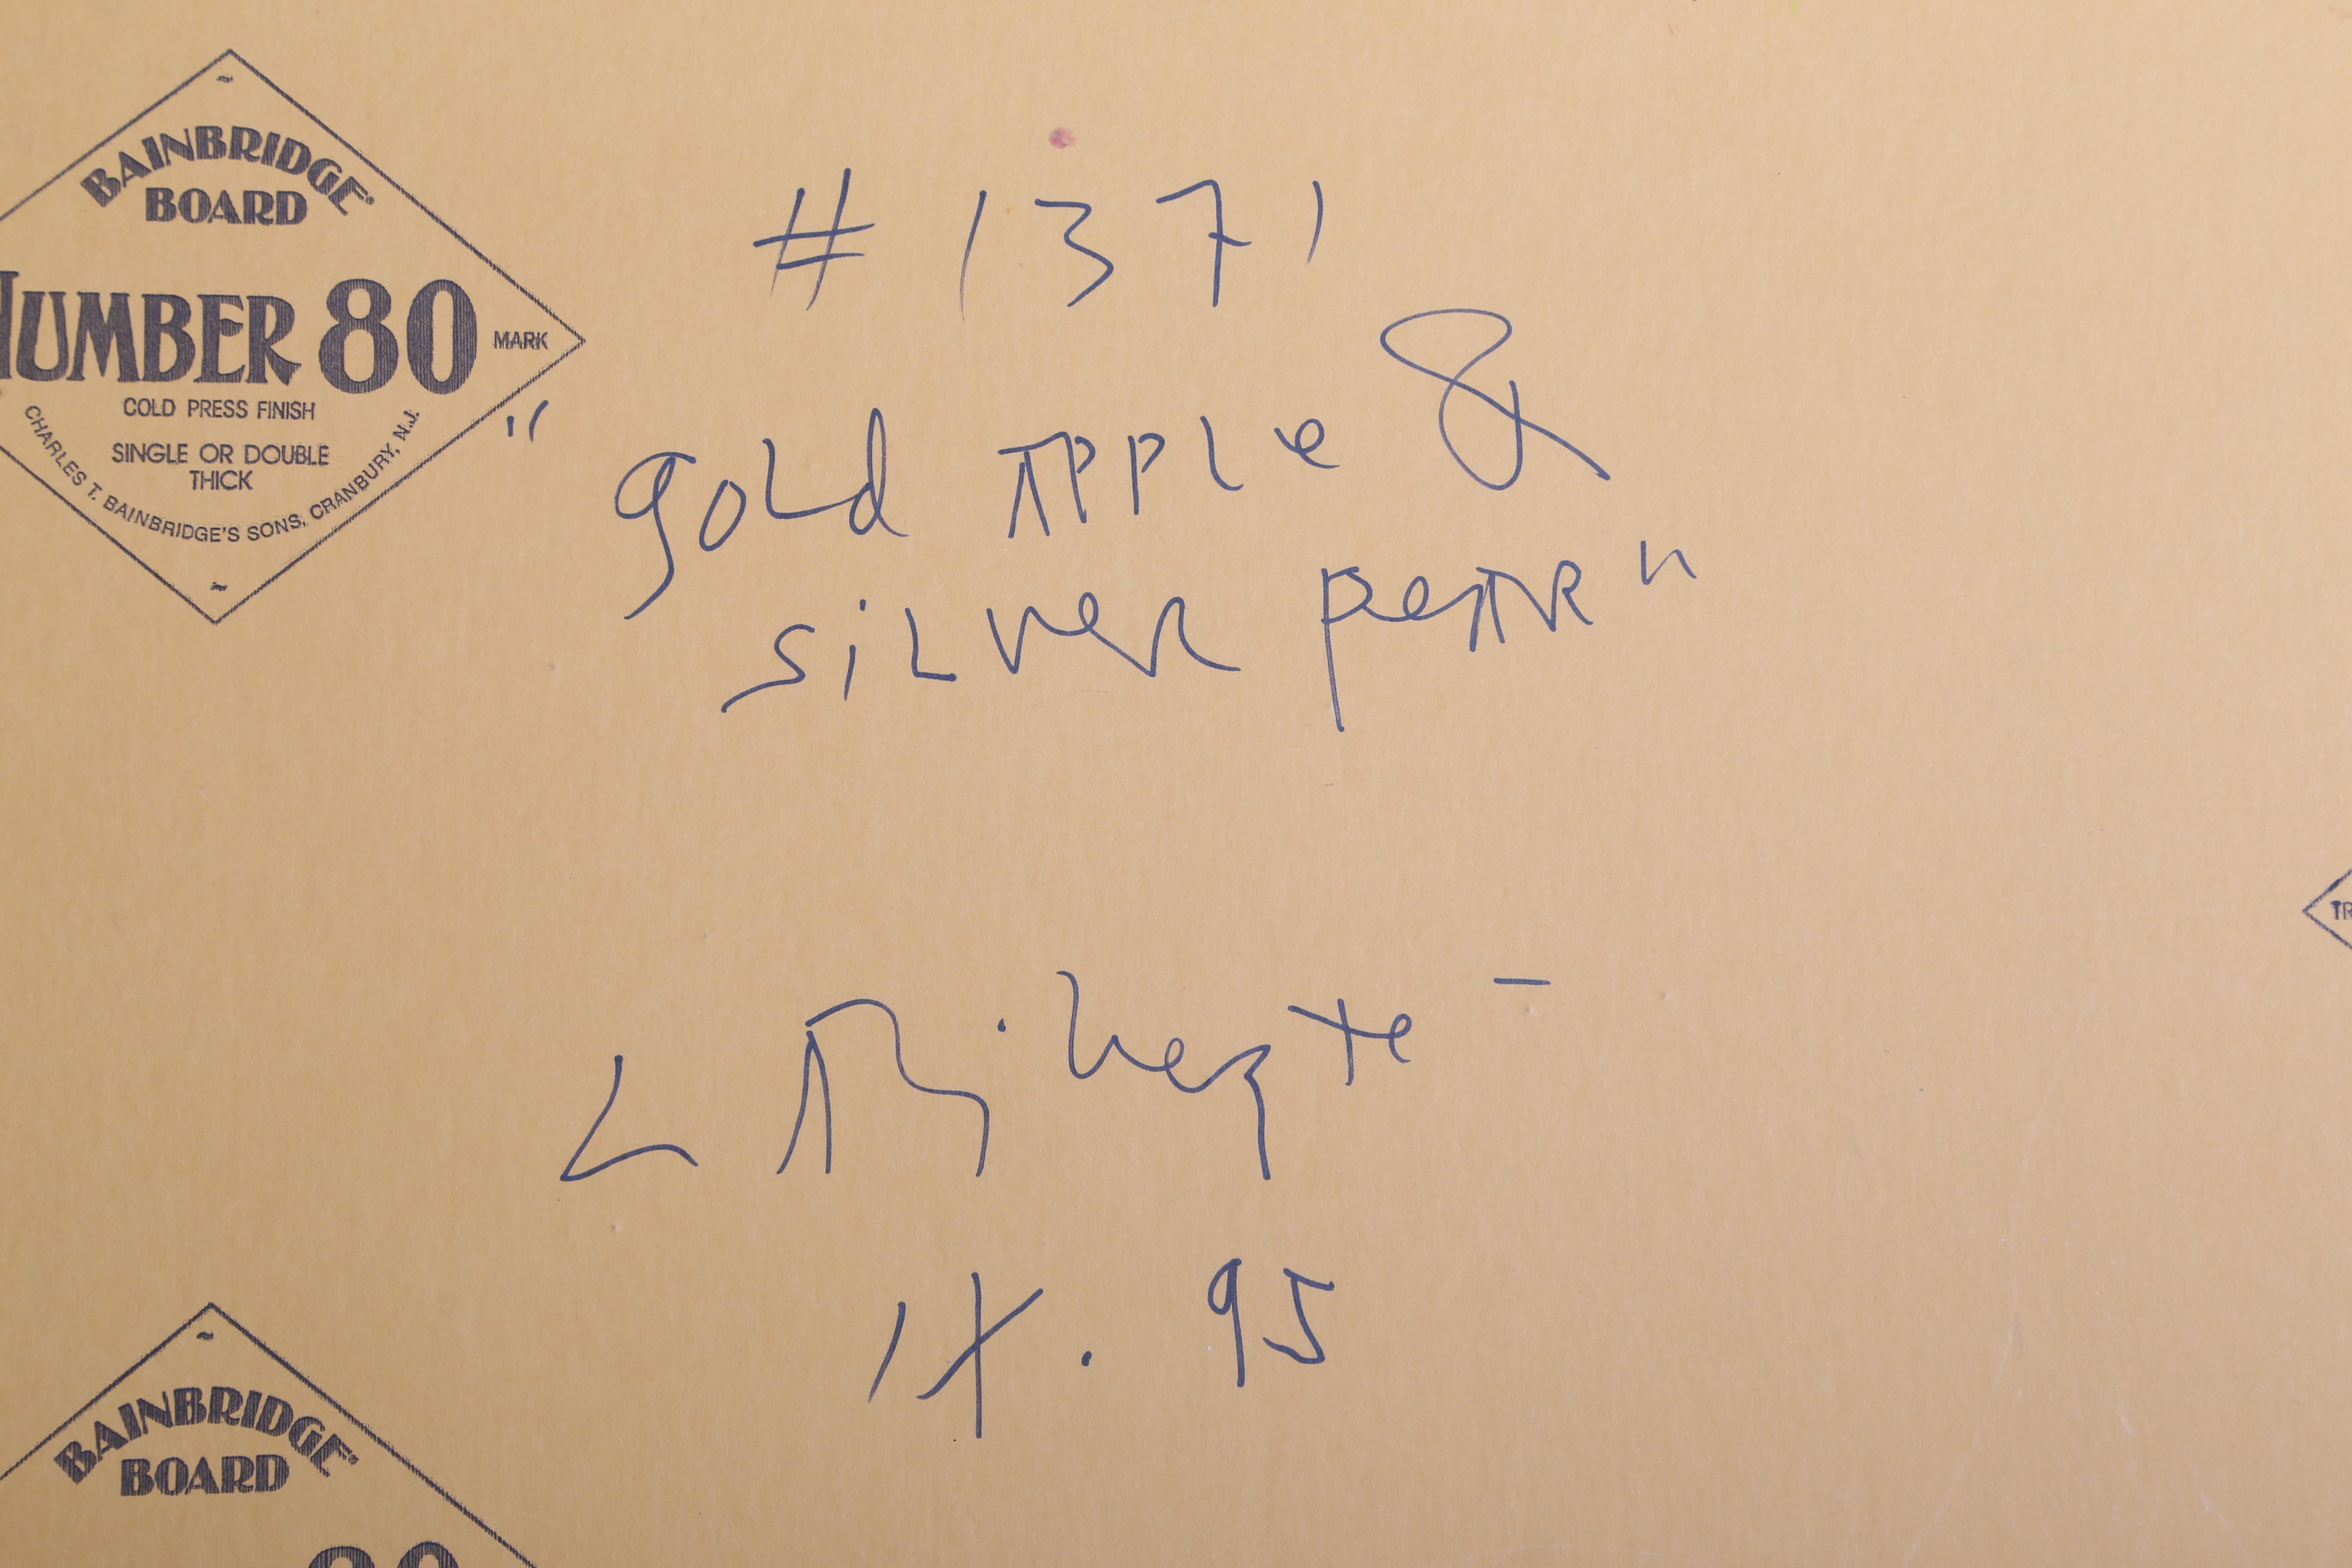 BAINBRIDGE
BOARD
NUMBER 80
MARK
COLD PRESS FINISH
SINGLE OR DOUBLE
THICK
CHARLES T. BAINBRIDGE'S SONS, CRANBURY, N.J.
# 1371
"gold Apple &
silver peAR"
L
IX. 95
TR
BAINBRIDGE
BOARD
80